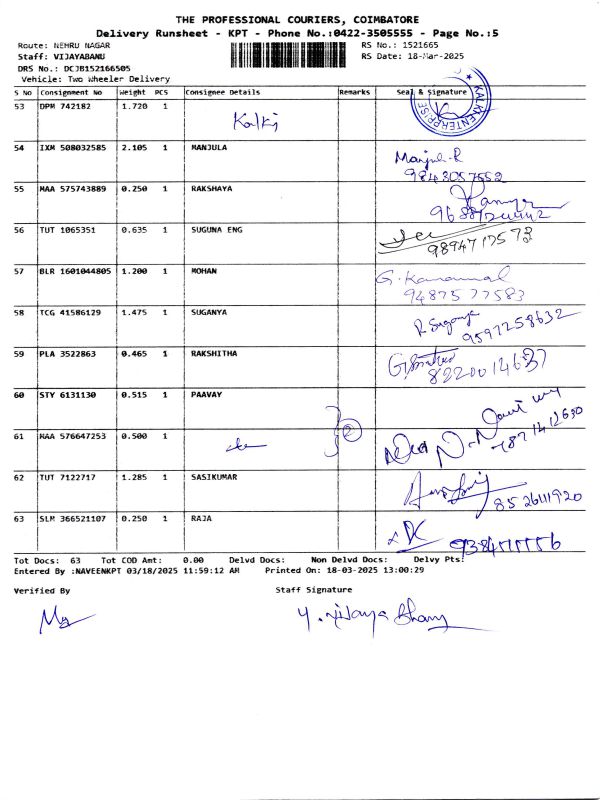 THE PROFESSIONAL COURIERS, COIMBATORE
Delivery Runsheet - KPT - Phone No.:0422-3505555 - Page No.:5
Route: NEHRU NAGAR RS No.: 1521665
Staff: VIJAYABANU RS Date: 18-Mar-2025
DRS No.: DCJB152166505
Vehicle: Two Wheeler Delivery
S No Consignment No Weight PCS Consignee Details Remarks Seal & Signature
53 DPM 742182 1.720 1 Kalki KALKI ENTERPRISE
54 IXM 508032585 2.105 1 MANJULA Manjula-R
9843057552
55 MAA 575743889 0.250 1 RAKSHAYA
56 TUT 1065351 0.635 1 SUGUNA ENG
57 BLR 1601044805 1.200 1 MOHAN
9487577583
58 TCG 41586129 1.475 1 SUGANYA
9597258632
59 PLA 3522863 0.465 1 RAKSHITHA
60 STY 6131130 0.515 1 PAAVAY
61 MAA 576647253 0.500 1 2
62 TUT 7122717 1.285 1 SASIKUMAR
63 SLM 366521107 0.250 1 RAJA
Tot Docs: 63 Tot COD Amt: 0.00 Delvd Docs: Non Delvd Docs: Delvy Pts:
Entered By :NAVEENKPT 03/18/2025 11:59:12 AM Printed On: 18-03-2025 13:00:29
Verified By Staff Signature
Y. Vijaya Bhanu